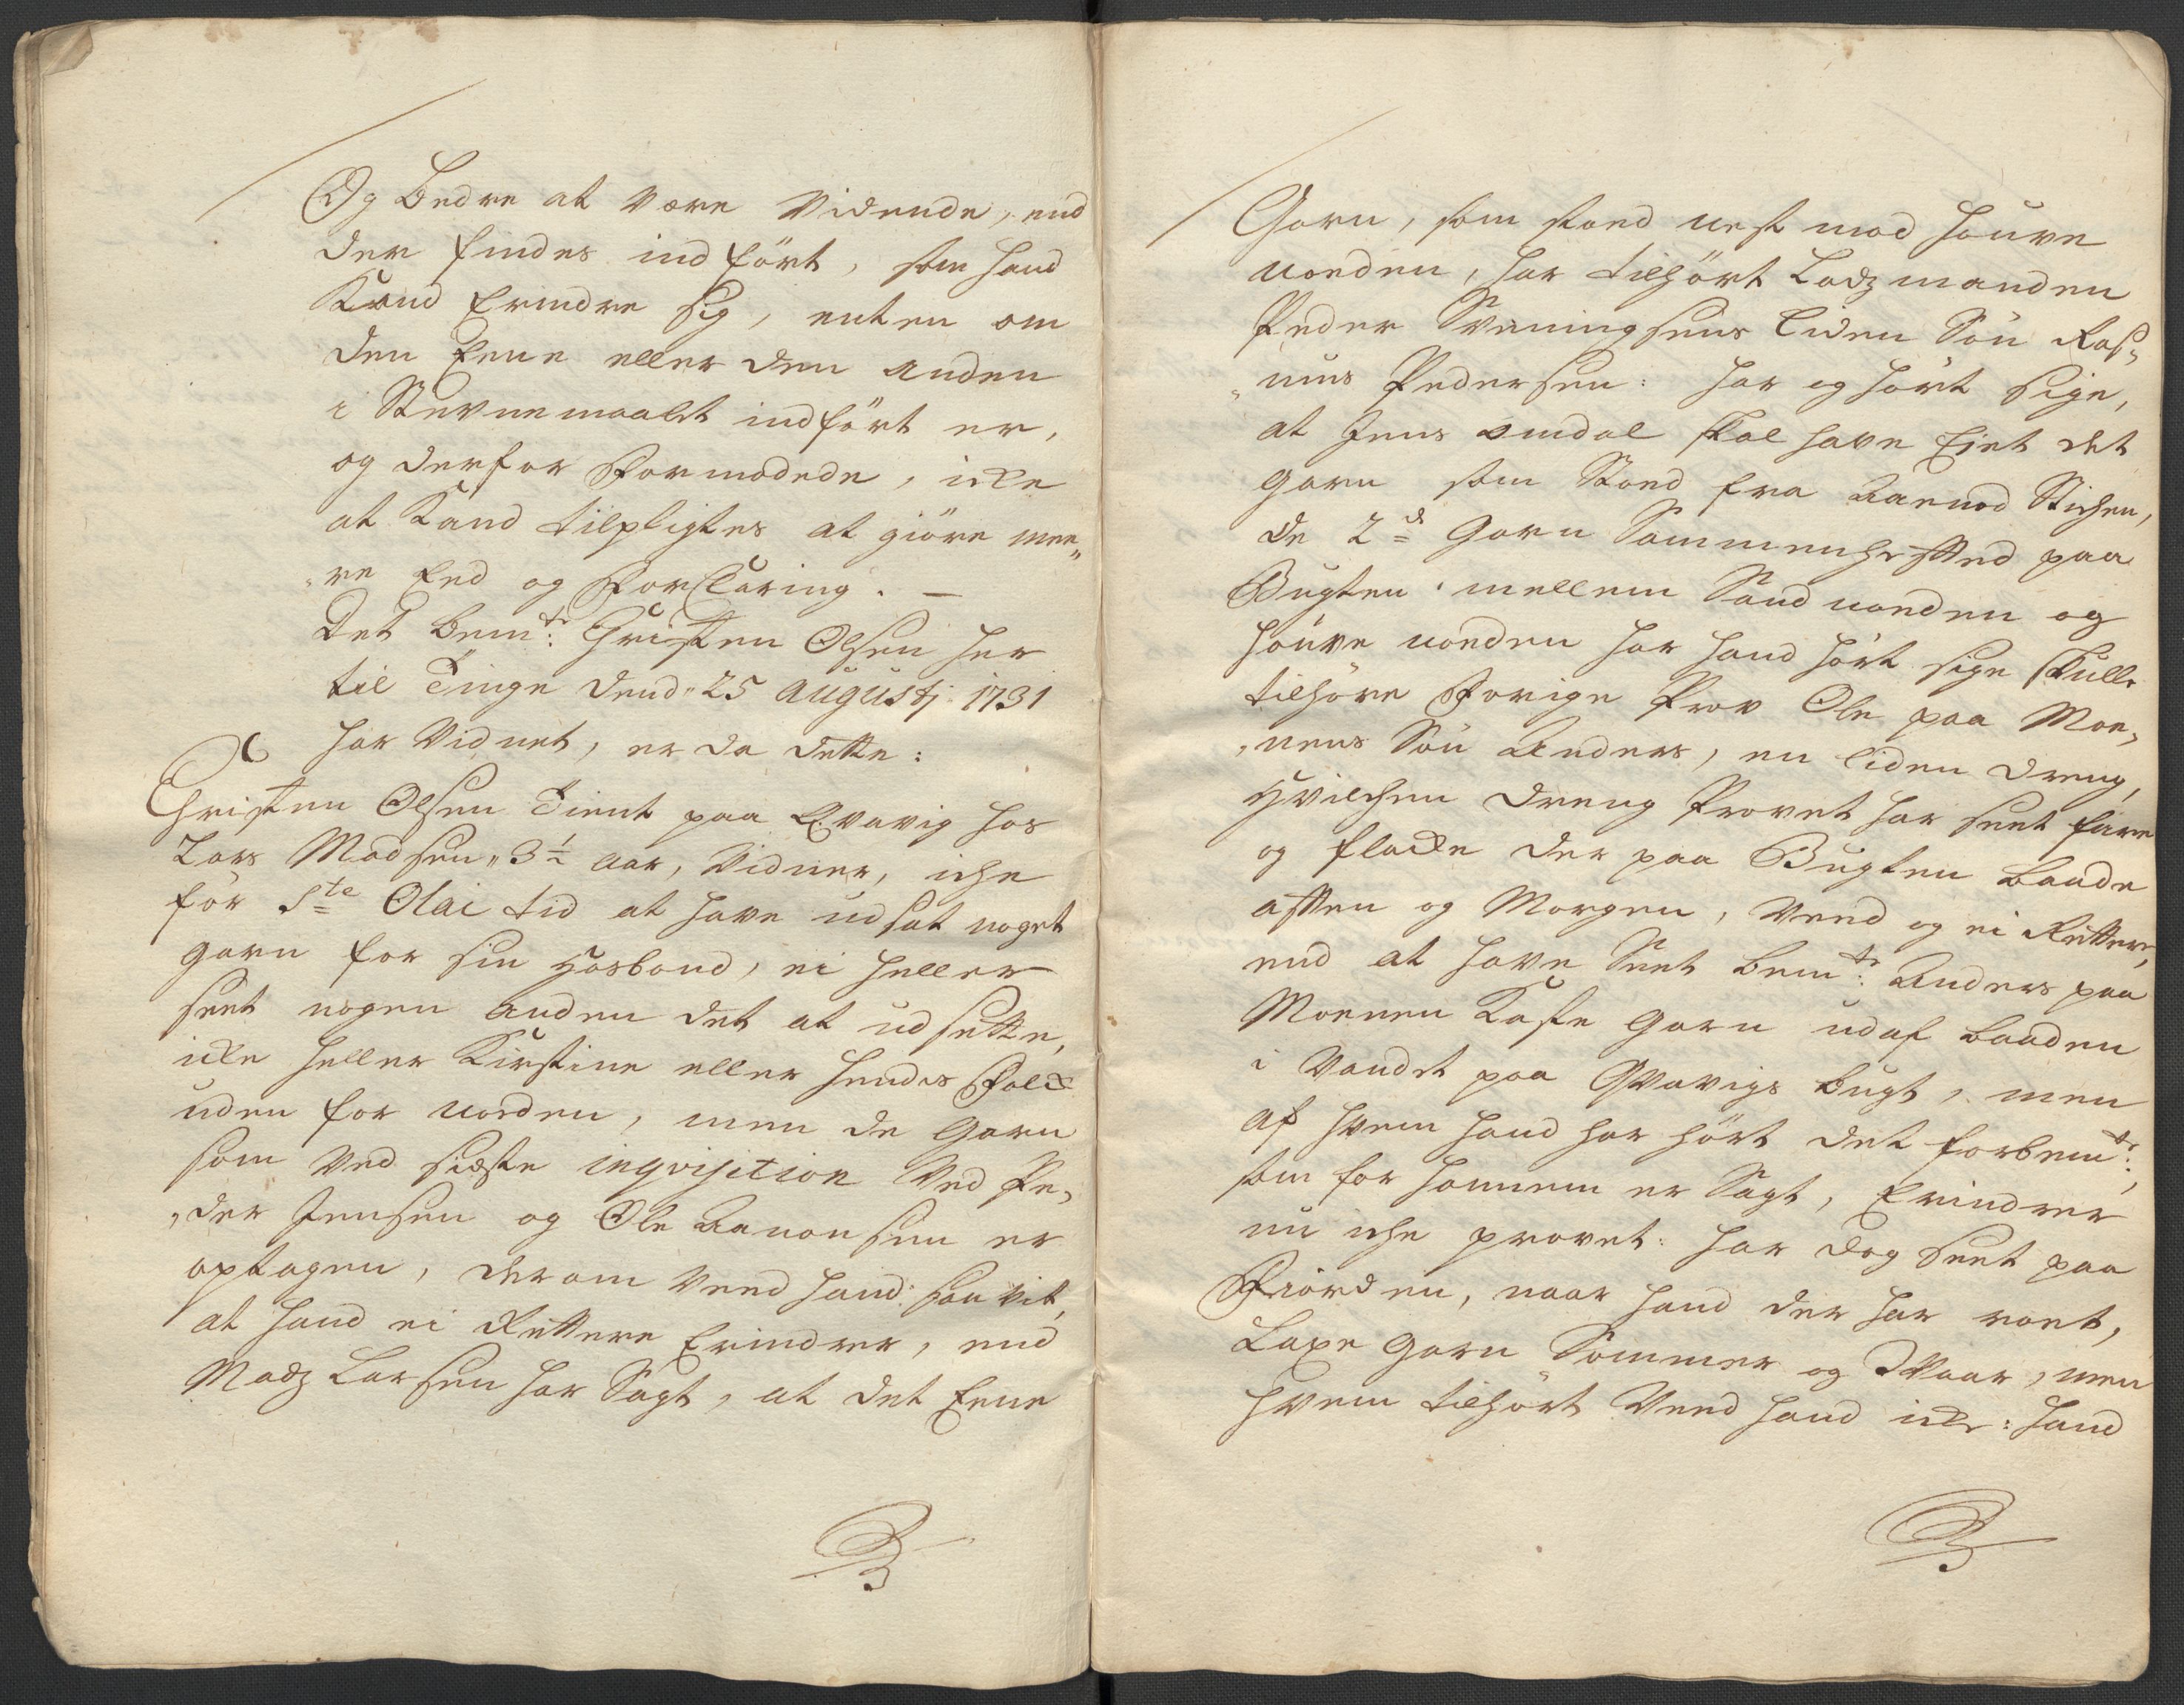 Og Bedre at være Vidende, end
der findes indført, som hand
Kand Erindre sig, enten om
den Eene eller den anden
i Stevnemaalet indført er,
og derfor Formodede, icke
at Kand tilpligtes at giöre mee„
„re Eed og Forklaring. —
Det bemte: Christen Olsen her
til Tinge dend 25 Augustj 1731
har Vidnet, er da dette:
Christen Olsen Tient paa Qvavig hos
Lars Madsen„ 3½ aar, Vidner, iche
før Ste Olai tid at have udsat noget
garn for sin Hosbond, ei heller
seet nogen anden det at udsette,
icke heller Kirstine eller hendes Folck
uden for noeden, men de Garn
som Ved sidste inqvisition Ved Pe„
„der Jensen og Ole Aanonsen er
optagen, derom Veed hand saa vit,
at hand ei Rettere Erindrer, end
Madz Larsen har Sagt, at det Eene
Garn, som stoed nest mod Houve
noeden, har tilhørt Lodzmanden
Peder Sveningsens liden Søn Ras„
„mus Pedersen: har og hørt sige,
at Jens Omdal skal have Eiet det
garn som Stoed fra Aanod Stichen,
de 2de Garn Sammenheftted paa
Bugten mellem Sandnoeden og
Houve noeden har hand hørt sige skulle
tilhøre Forige Prov Ole paa Moe„
„nens Søn Anders, en liden dreng,
Hvilchen dreng Provet har seet fare
og flacke der paa Bugten baade
afften og Morgen, Veed og ei Rettere,
end at have Seet bemte: Anders paa
Moenen Kaste Garn udaf baaden
i Vandet paa Qvavigs bugt, men
af hvem hand har hørt det forbemte:,
som for hannem er Sagt, Erindrer
nu iche provet: har dog Seet paa
Fiorden, naar hand der har roet,
Laxe Garn Sommer og Vaar, men
hvem tilhørt Veed hand icke: hand